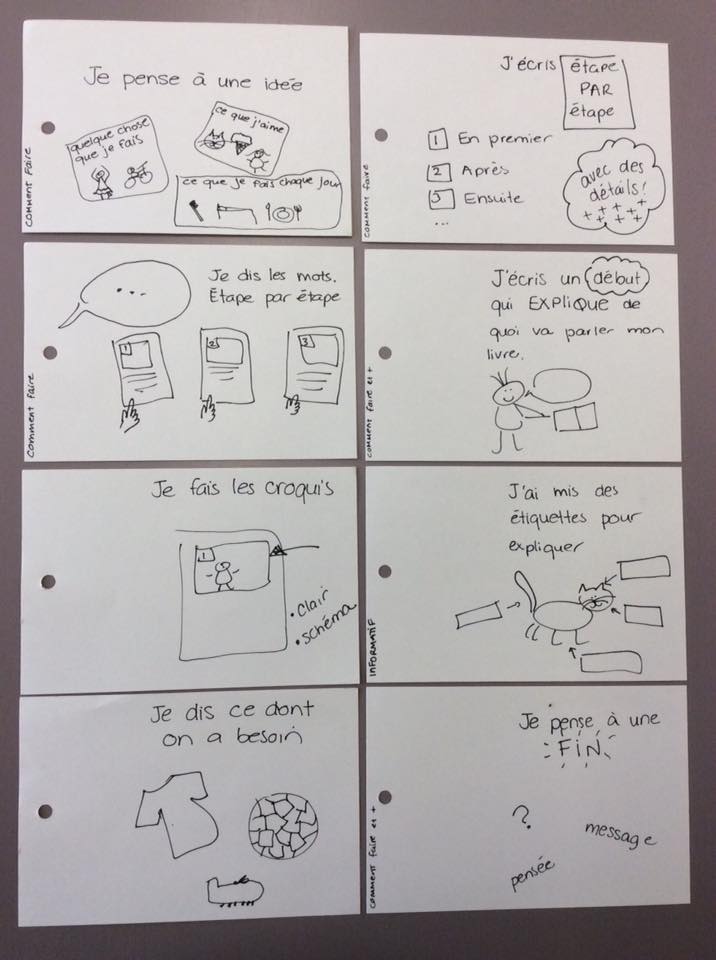 Je pense à une idée
quelque chose
que je fais
ce que j'aime
ce que je fais chaque jour
COMMENT FAIRE
Je dis les mots.
Étape par étape
...
1
2
3
Comment faire
Je fais les croquis
1
• clair
• schéma
Je dis ce dont
on a besoin
J'écris étape
PAR
étape
1 En premier
2 Après
3 Ensuite
...
avec des
détails!
+ + + + +
+ + + +
comment faire
J'écris un début
qui EXPLIQUE de
quoi va parler mon
livre.
COMMENT faire et +
J'ai mis des
étiquettes pour
expliquer
INFORMATIF
Je pense à une
FIN
?
message
pensée
comment faire et +